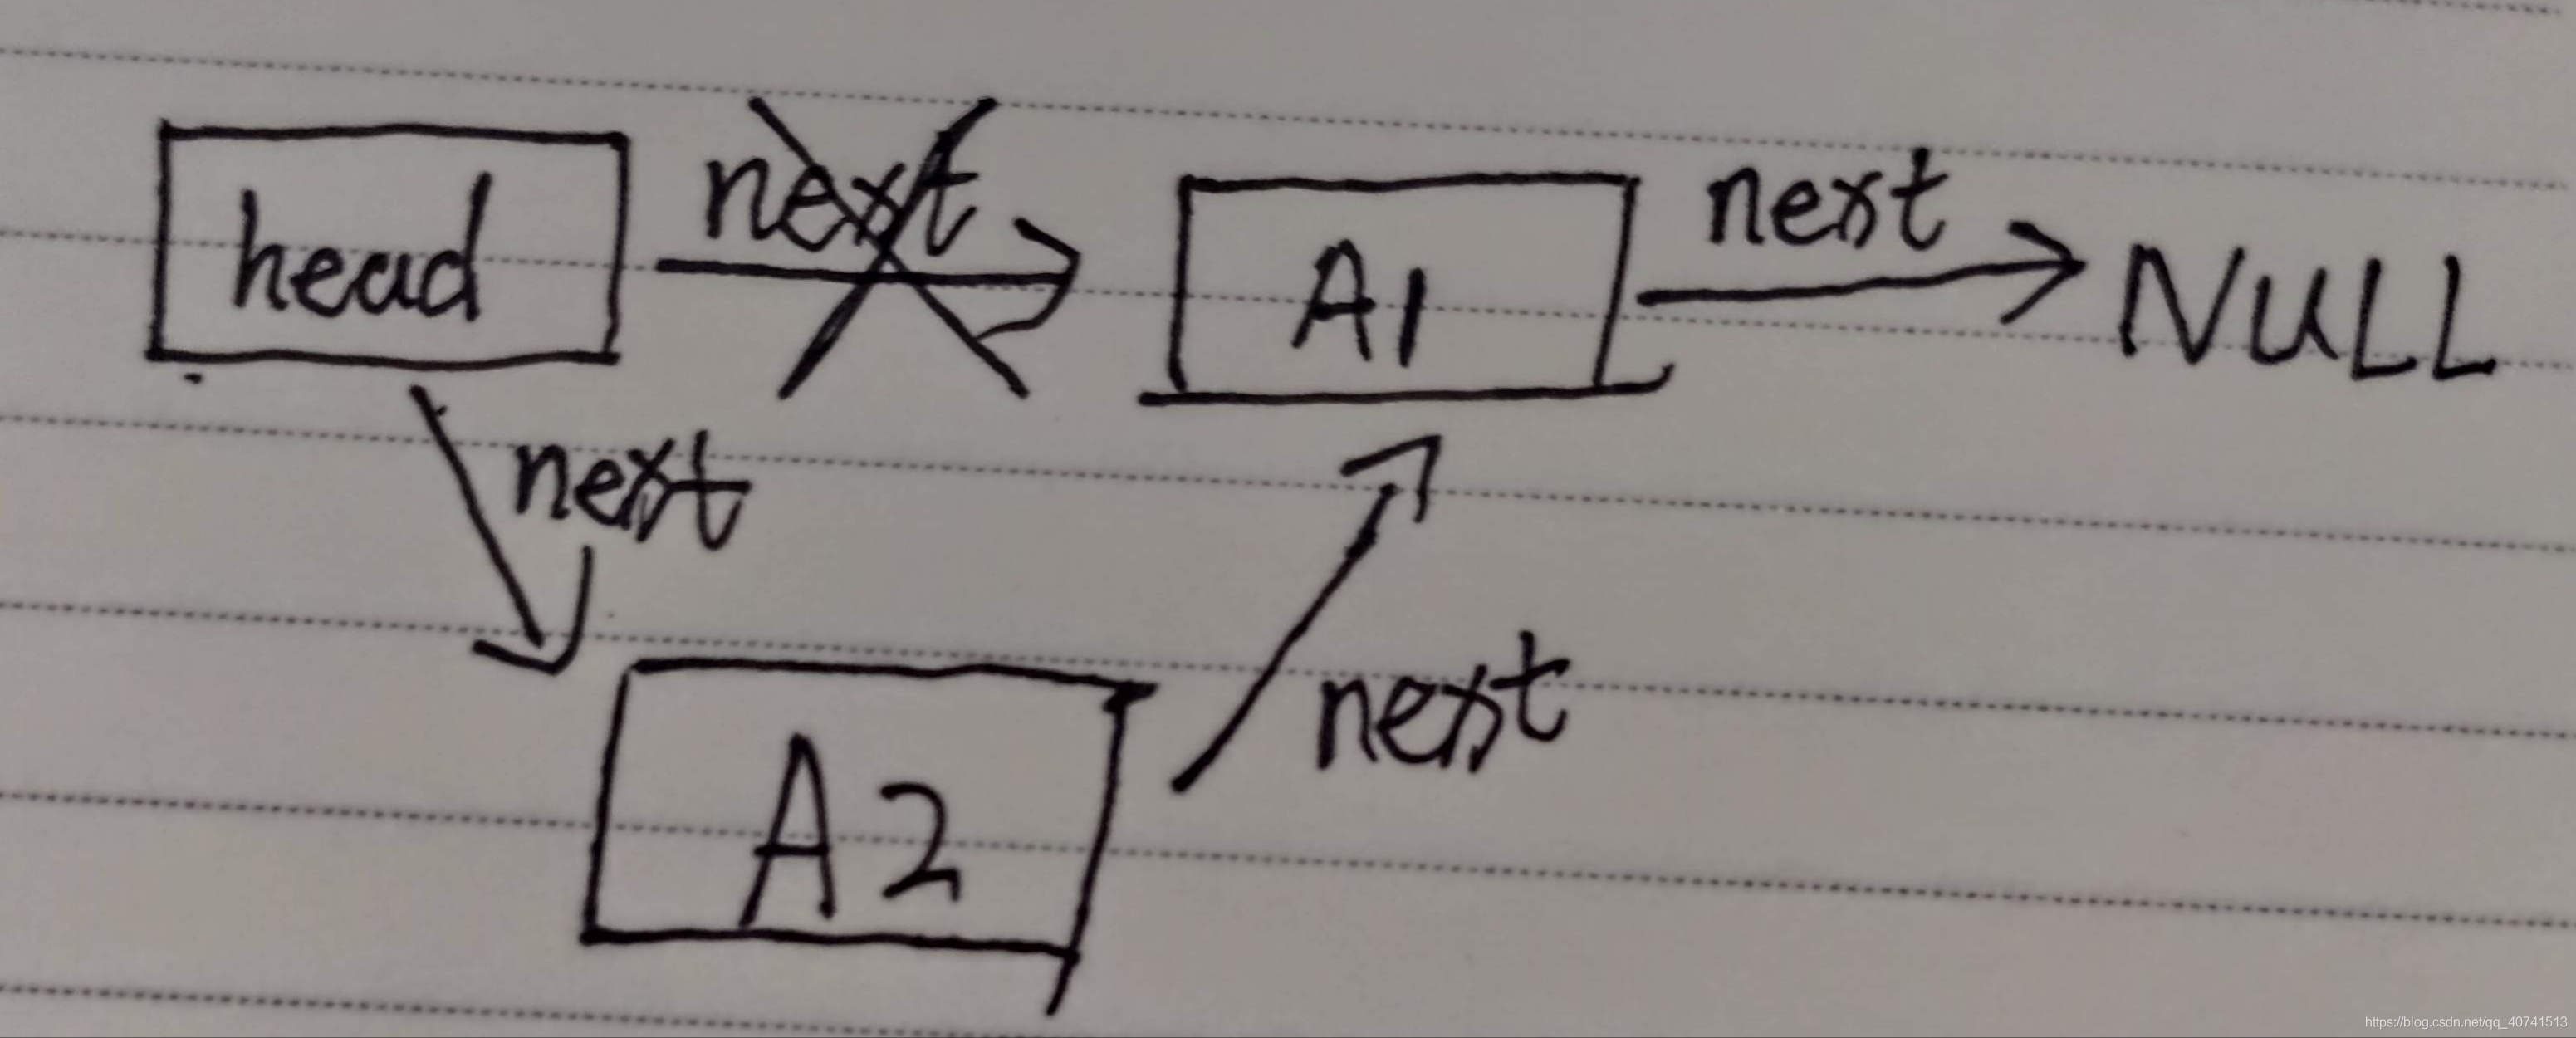 head
next
A1
next
NULL
next
next
A2
https://blog.csdn.net/qq_40741513